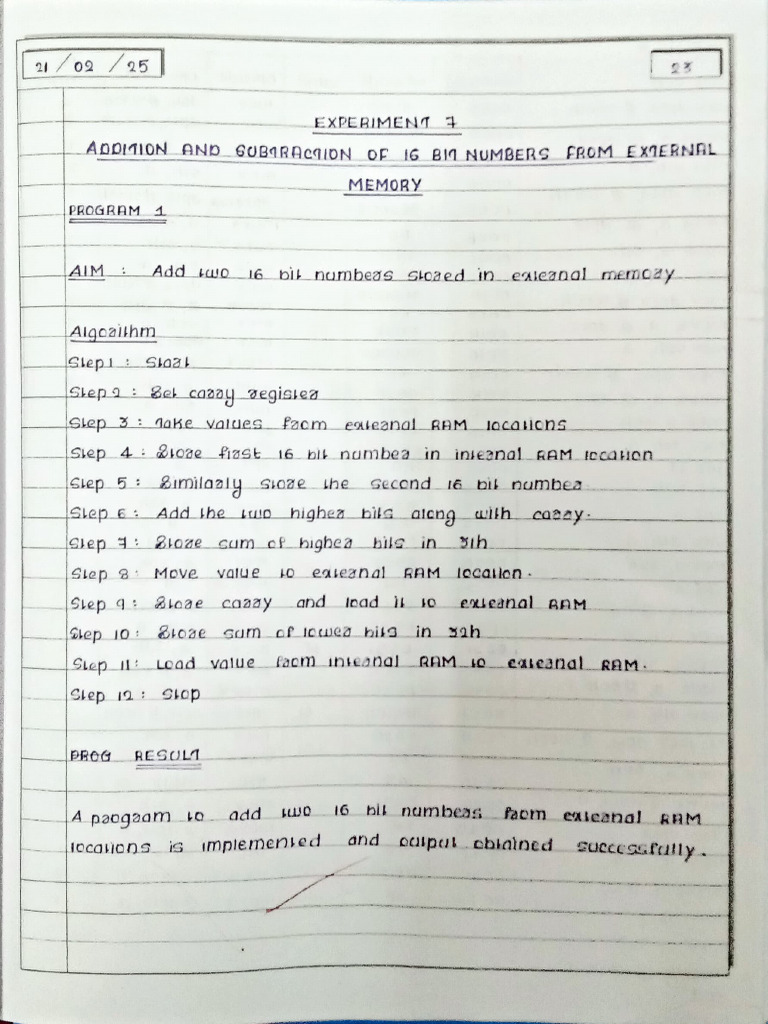 21 / 02 / 25
23
EXPERIMENT 7
ADDITION AND SUBTRACTION OF 16 BIT NUMBERS FROM EXTERNAL
MEMORY
PROGRAM 1
AIM : Add two 16 bit numbers stored in external memory
Algorithm
Step 1 : Start
Step 2 : Set carry register
Step 3 : Take values from external RAM locations
Step 4 : Store first 16 bit number in internal RAM location
Step 5 : Similarly store the second 16 bit number.
Step 6 : Add the two higher bits along with carry.
Step 7 : Store sum of higher bits in 31h
Step 8 : Move value to external RAM location.
Step 9 : Store carry and load it to external RAM
Step 10 : Store sum of lower bits in 32h
Step 11 : Load value from internal RAM to external RAM.
Step 12 : Stop
PROG RESULT
A program to add two 16 bit numbers from external RAM
locations is implemented and output obtained successfully.